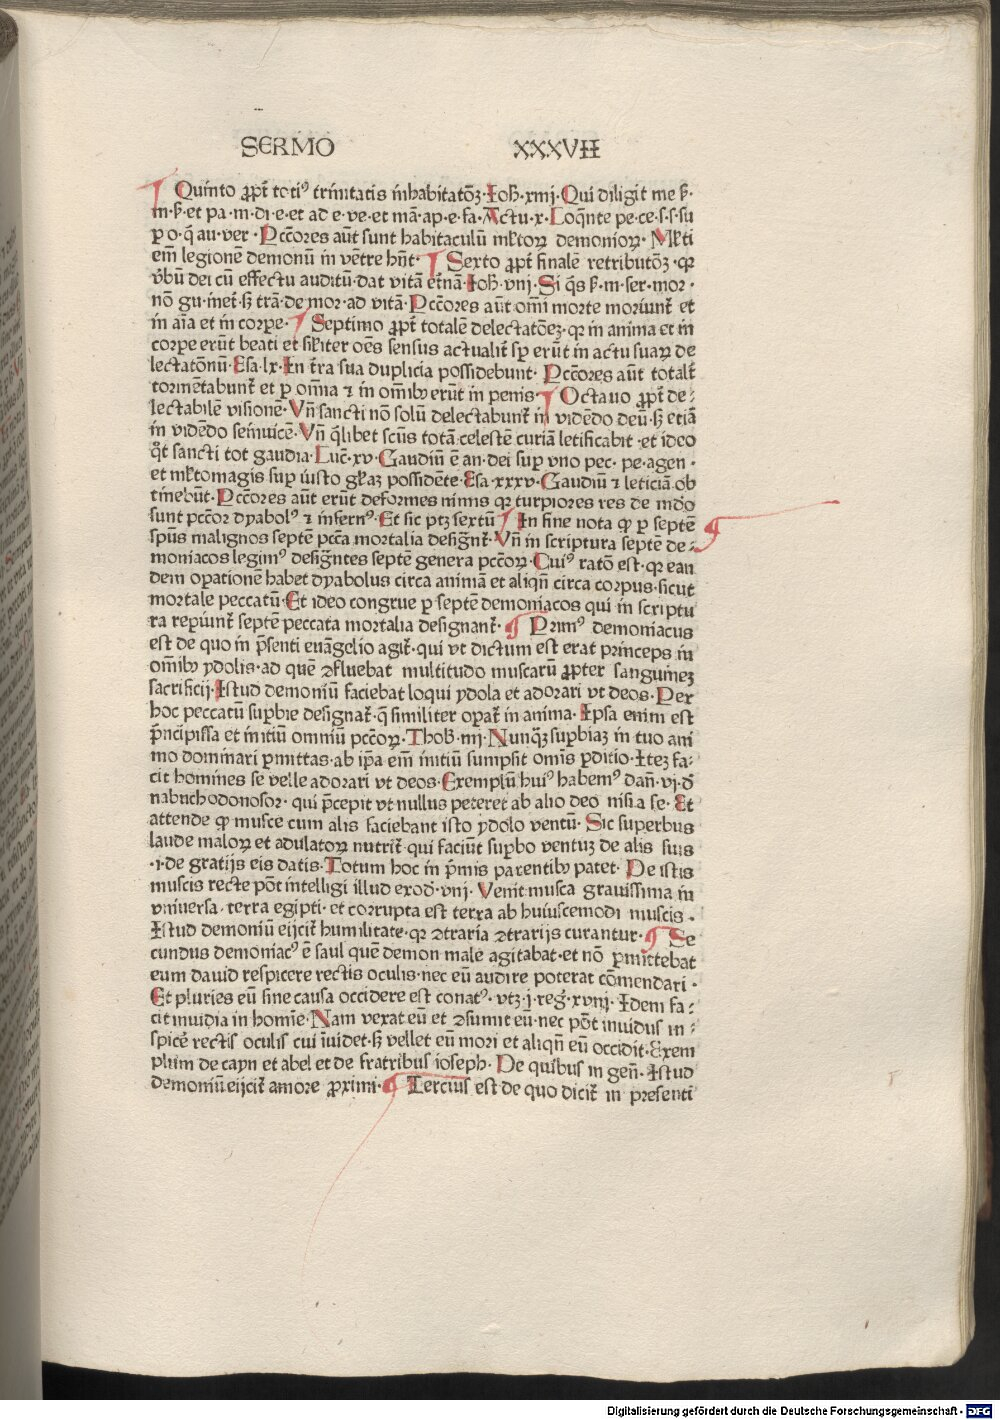 SERMO XXXVII
Quinto ꝓpt̄ toti⁹ trinitatis inhabitatōꝫ· Ioh̄· xiiij· Qui diligit me ẜ·
m·ẜ·et pa·m·di·e·et ad e·ve·et mā·ap·e·fa· Actu·x· Loq̄nte pe·ce·s·s·su
ꝑ o·q̄ au·ver· Pcc̄ores aūt sunt habitaculū ml̄toꝝ demonioꝝ· Ml̄ti
em̄ legionē demonū in vētre hn̄t· Sexto ꝓpt̄ finalē retributōꝫ· qꝛ
v̄bū dei cū effectu auditū·dat vitā et̄nā· Ioh̄· viij· Si q̄s ẜ·m·ser·mor·
nō gu·inet̄·ẜꝫ trā·de mor·ad vitā· Pcc̄ores aūt om̄i morte moriunt̄ et
in aīa et in corpe· Septimo ꝓpt̄ totalē delectatōeꝫ· qꝛ in anima et in
corpe erūt beati et sil̄iter oēs sensus actualit̄ sꝑ erūt in actu suaꝝ de
lectatōnū· Esa·lx· In t̄ra sua duplicia possidebunt· Pcc̄ores aūt totalit̄
tormētabunt̄ et ꝑ om̄ia ⁊ in om̄ibꝰ erūt in penis· Octauo ꝓpt̄ de⸗
lectabilē visionē· Vn̄ sancti nō solū delectabunt̄ in vidēdo deū·ẜꝫ etiā
in vidēdo seinuicē· Vn̄ q̄libet scūs totā celestē curiā letificabit·et ideo
qͦt sancti tot gaudia· Luc̄·xv· Gaudiū ē an·dei suꝑ vno pec·pe·agen·
et ml̄tomagis suꝑ iusto gl̄iaꝫ possidēte· Esa·xxxv· Gaudiū ⁊ leticiā ob
tinebūt· Pcc̄ores aūt erūt deformes nimis qꝛ turpiores res de mūdo
sunt pccōr dyabol⁹ ⁊ infern⁹· Et sic ptꝫ sextū In fine nota ꝙ ꝑ septē
spūs malignos septē pcc̄a mortalia designt̄· Vn̄ in scriptura septē de⸗
moniacos legim⁹ designātes septē genera pcc̄oꝝ· Cui⁹ ratō est· qꝛ ean
dem opationē habet dyabolus circa animā et aliqn̄ circa corpus·sicut
mortale peccatū· Et ideo congrue ꝑ septē demoniacos qui in scriptu
ra repiunt̄ septē peccata mortalia designant̄· Prim⁹ demoniacus
est de quo in p̄senti euāgelio agit̄· qui vt dictum est erat princeps in
om̄ibꝰ ydolis·ad quē ꝯfluebat multitudo muscarū ꝓpter sanguineꝫ
sacrificij· Istud demoniū faciebat loqui ydola et adorari vt deos· Per
hoc peccatū supbie designat̄· q̄ similiter opat̄ in anima· Ipsa enim est
p̄ncipissa et initiū omniū pcc̄oꝝ· Thob̄·iiij· Nunq̄ꝫ supbiaꝫ in tuo ani
mo dominari pmittas·ab ip̄a em̄ initiū sumpsit omīs pditio·Iteꝫ fa⸗
cit homines se velle adorari vt deos· Exemplū hui⁹ habem⁹ dan̄·vj·d̄
nabuchodonosor· qui p̄cepit vt nullus peteret ab alio deo nisi a se· Et
attende ꝙ musce cum alis faciebant isto ydolo ventū· Sic superbus
laude maloꝝ et adulatoꝝ nutrit̄·qui faciūt supbo ventuꝫ de alis suis
·i·de gratijs eis datis· Totum hoc in p̄mis parentibꝰ patet· De istis
muscis recte pōt intelligi illud exod̄·viij· Venit musca grauissima in
vniuersa terra egipti·et corrupta est terra ab huiuscemodi muscis·
Istud demoniū eijcit̄ humilitate·qꝛ ꝯtraria ꝯtrarijs curantur· Se
cundus demoniac⁹ ē saul quē demon male agitabat·et nō pmittebat
eum dauid respicere rectis oculis·nec eū audire poterat cōmendari·
Et pluries eū sine causa occidere est conat⁹·vtꝫ·j·reḡ·xviij· Idem fa⸗
cit inuidia in homīe· Nam vexat eū et ꝯsumit eū·nec pōt inuidus in⸗
spicē rectis oculis cui īuidet·ẜꝫ vellet eū mori et aliqn̄ eū occidit·Exem
plum de cayn et abel et de fratribus ioseph· De quibus in gen̄· Istud
demoniū eijcit̄ amore ꝓximi· Tercius est de quo dicit̄ in presenti
Digitalisierung gefördert durch die Deutsche Forschungsgemeinschaft - DFG